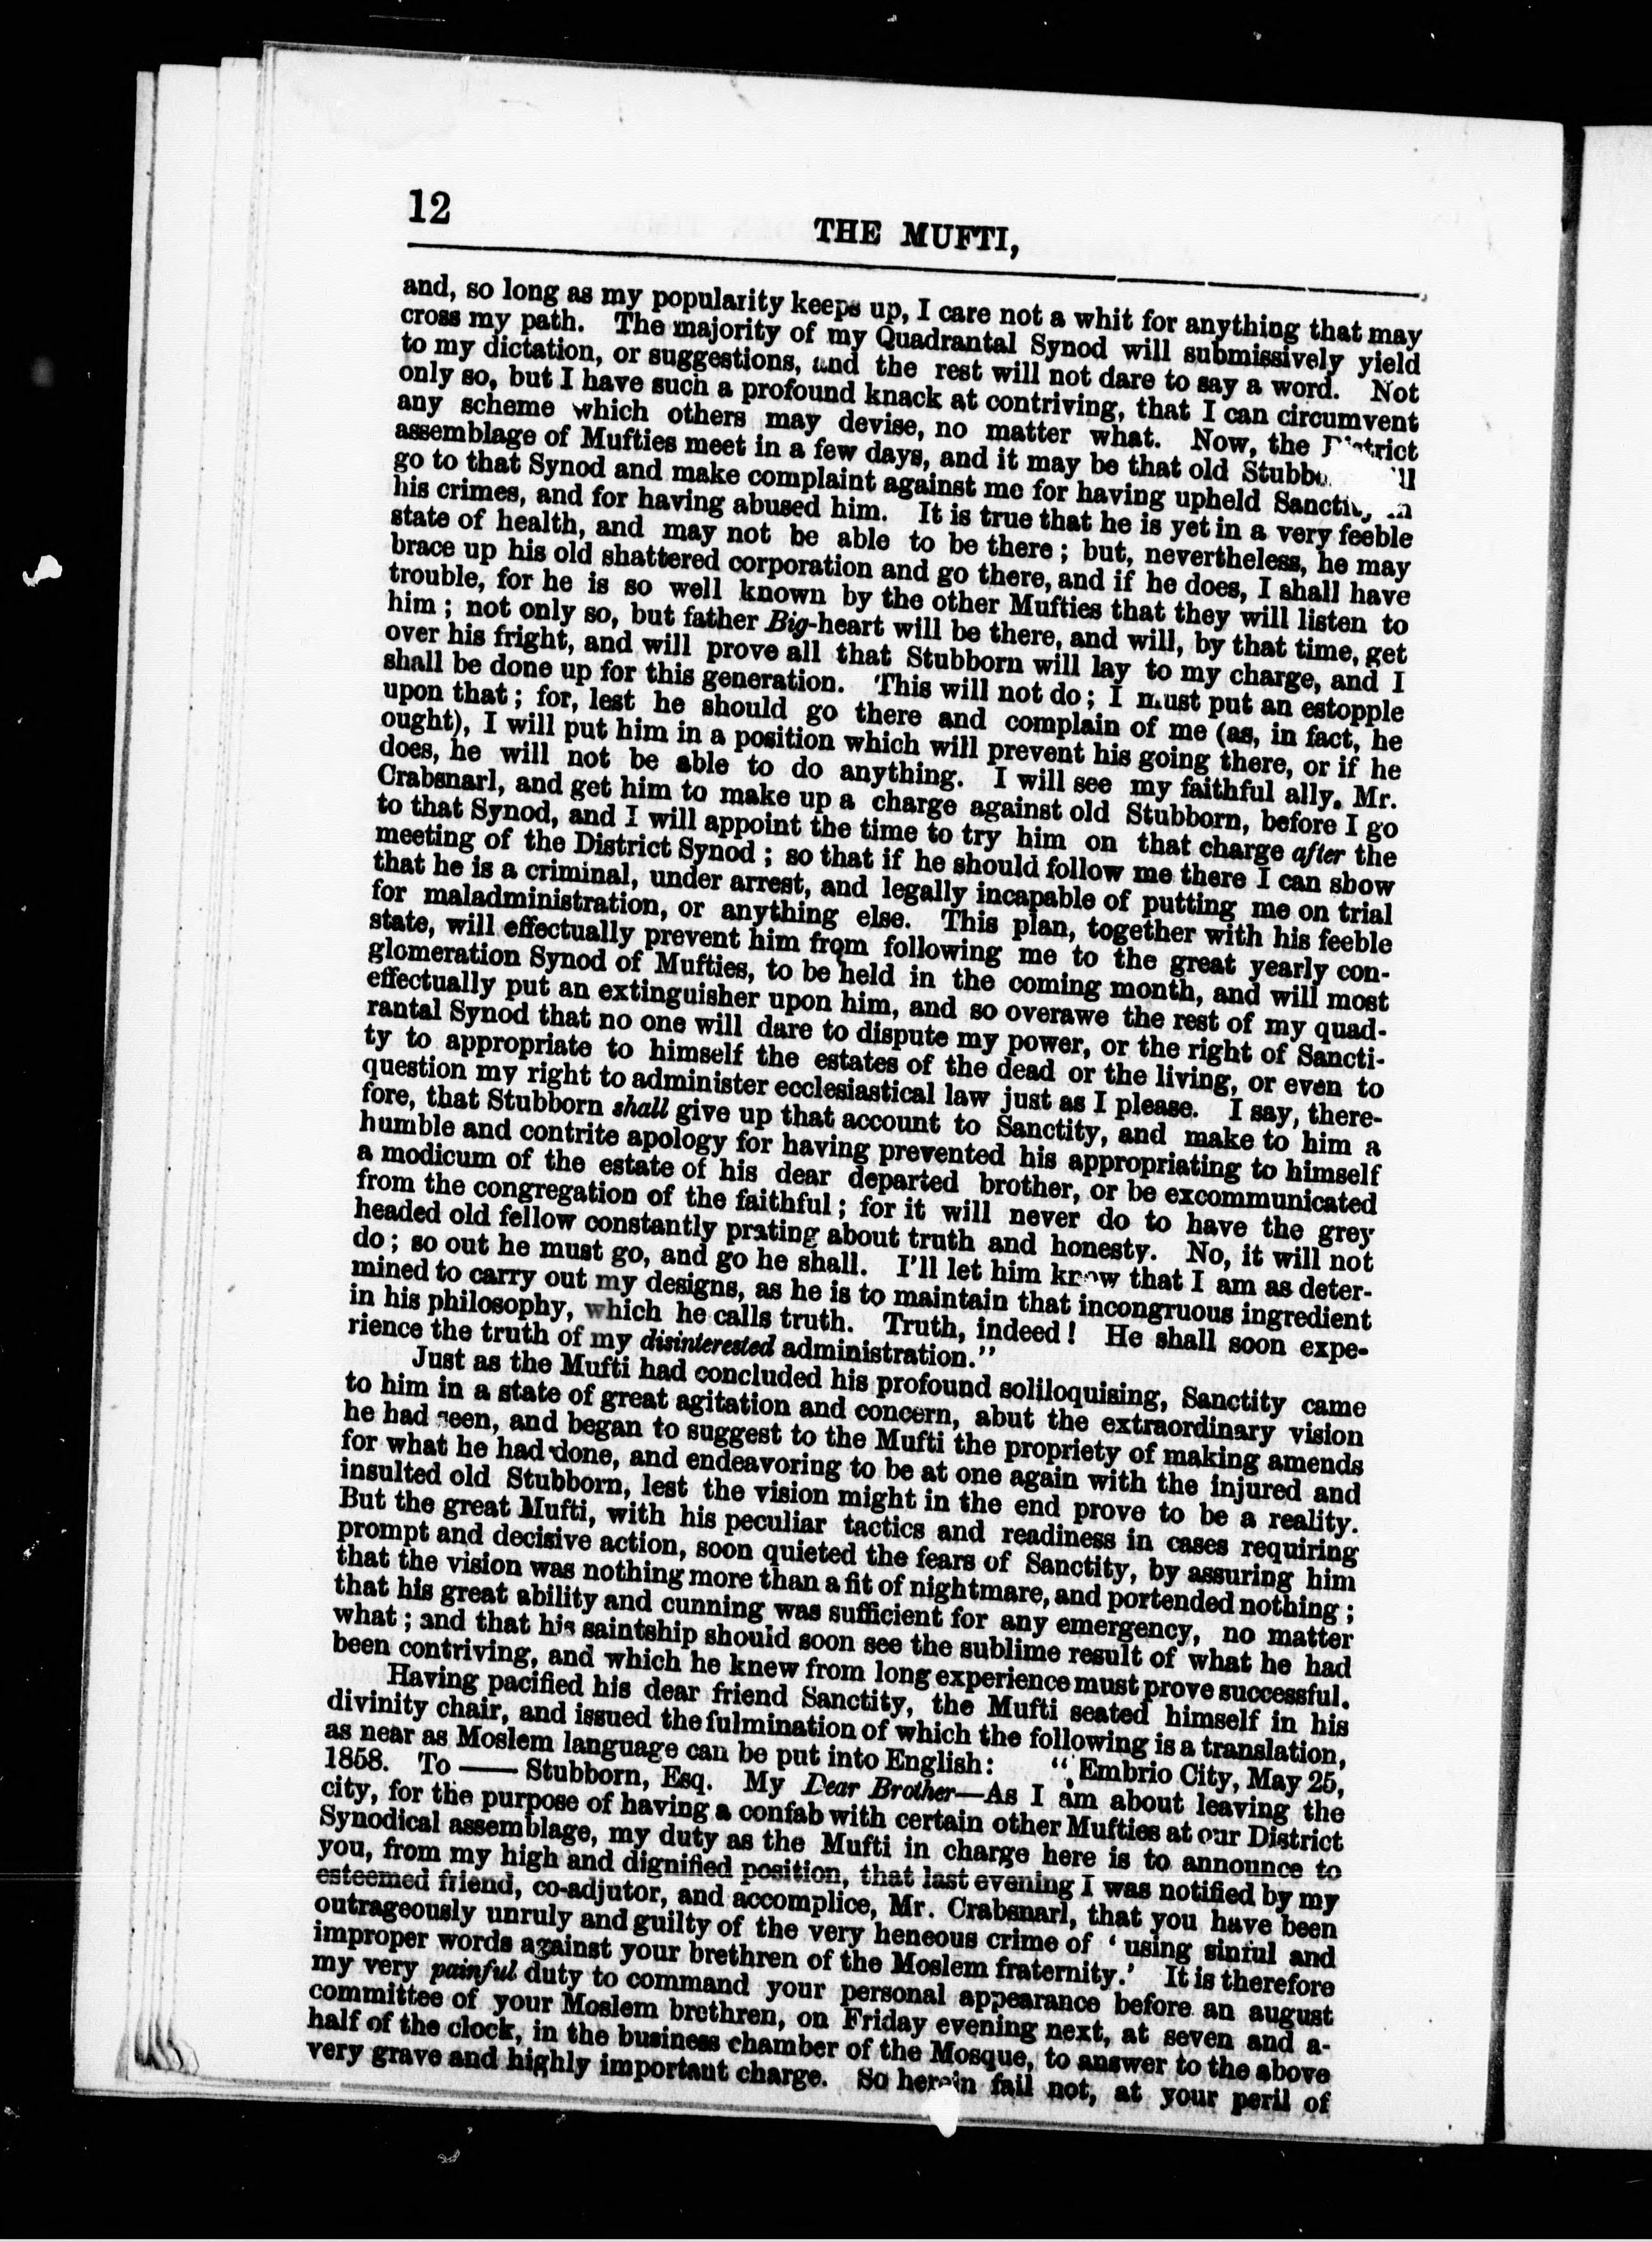 12
THE MUFTI,
and, so long as my popularity keeps up, I care not a whit for anything that may
cross my path. The majority of my Quadrantal Synod will submissively yield
to my dictation, or suggestions, and the rest will not dare to say a word. Not
only so, but I have such a profound knack at contriving, that I can circumvent
any scheme which others may devise, no matter what. Now, the District
assemblage of Mufties meet in a few days, and it may be that old
go to that Synod and make complaint against me for having upheld Sanctity in
his crimes, and for having abused him. It is true that he is yet in a very feeble
state of health, and may not be able to be there; but, nevertheless, he may
brace up his old shattered corporation and go there, and if he does, I shall have
trouble, for he is so well known by the other Mufties that they will listen to
him; not only so, but father Big-heart will be there, and will, by that time, get
over his fright, and will prove all that Stubborn will lay to my charge, and I
shall be done up for this generation. This will not do; I must put an estopple
upon that; for, lest he should go there and complain of me (as, in fact, he
ought), I will put him in a position which will prevent his going there, or if he
does, he will not be able to do anything. I will see my faithful ally, Mr.
Crabsnarl, and get him to make up a charge against old Stubborn, before I go
to that Synod, and I will appoint the time to try him on that charge after the
meeting of the District Synod; so that if he should follow me there I can show
that he is a criminal, under arrest, and legally incapable of putting me on trial
for maladministration, or anything else. This plan, together with his feeble
state, will effectually prevent him from following me to the great yearly con-
glomeration Synod of Mufties, to be held in the coming month, and will most
effectually put an extinguisher upon him, and so overawe the rest of my quad-
rantal Synod that no one will dare to dispute my power, or the right of Sancti-
ty to appropriate to himself the estates of the dead or the living, or even to
question my right to administer ecclesiastical law just as I please. I say, there-
fore, that Stubborn shall give up that account to Sanctity, and make to him a
humble and contrite apology for having prevented his appropriating to himself
a modicum of the estate of his dear departed brother, or be excommunicated
from the congregation of the faithful; for it will never do to have the grey
headed old fellow constantly prating about truth and honesty. No, it will not
do; so out he must go, and go he shall. I'll let him know that I am as deter-
mined to carry out my designs, as he is to maintain that incongruous ingredient
in his philosophy, which he calls truth. Truth, indeed! He shall soon expe-
rience the truth of my disinterested administration."
Just as the Mufti had concluded his profound soliloquising, Sanctity came
to him in a state of great agitation and concern, abut the extraordinary vision
he had seen, and began to suggest to the Mufti the propriety of making amends
for what he had done, and endeavoring to be at one again with the injured and
insulted old Stubborn, lest the vision might in the end prove to be a reality.
But the great Mufti, with his peculiar tactics and readiness in cases requiring
prompt and decisive action, soon quieted the fears of Sanctity, by assuring him
that the vision was nothing more than a fit of nightmare, and portended nothing;
that his great ability and cunning was sufficient for any emergency, no matter
what; and that his saintship should soon see the sublime result of what he had
been contriving, and which he knew from long experience must prove successful.
Having pacified his dear friend Sanctity, the Mufti seated himself in his
divinity chair, and issued the fulmination of which the following is a translation,
as near as Moslem language can be put into English: "Embrio City, May 25,
1858. To —— Stubborn, Esq. My Dear Brother—As I am about leaving the
city, for the purpose of having a confab with certain other Mufties at our District
Synodical assemblage, my duty as the Mufti in charge here is to announce to
you, from my high and dignified position, that last evening I was notified by my
esteemed friend, co-adjutor, and accomplice, Mr. Crabsnarl, that you have been
outrageously unruly and guilty of the very heneous crime of 'using sinful and
improper words against your brethren of the Moslem fraternity.' It is therefore
my very painful duty to command your personal appearance before an august
committee of your Moslem brethren, on Friday evening next, at seven and a-
half of the clock, in the business chamber of the Mosque, to answer to the above
very grave and highly important charge. So herein fail not, at your peril of